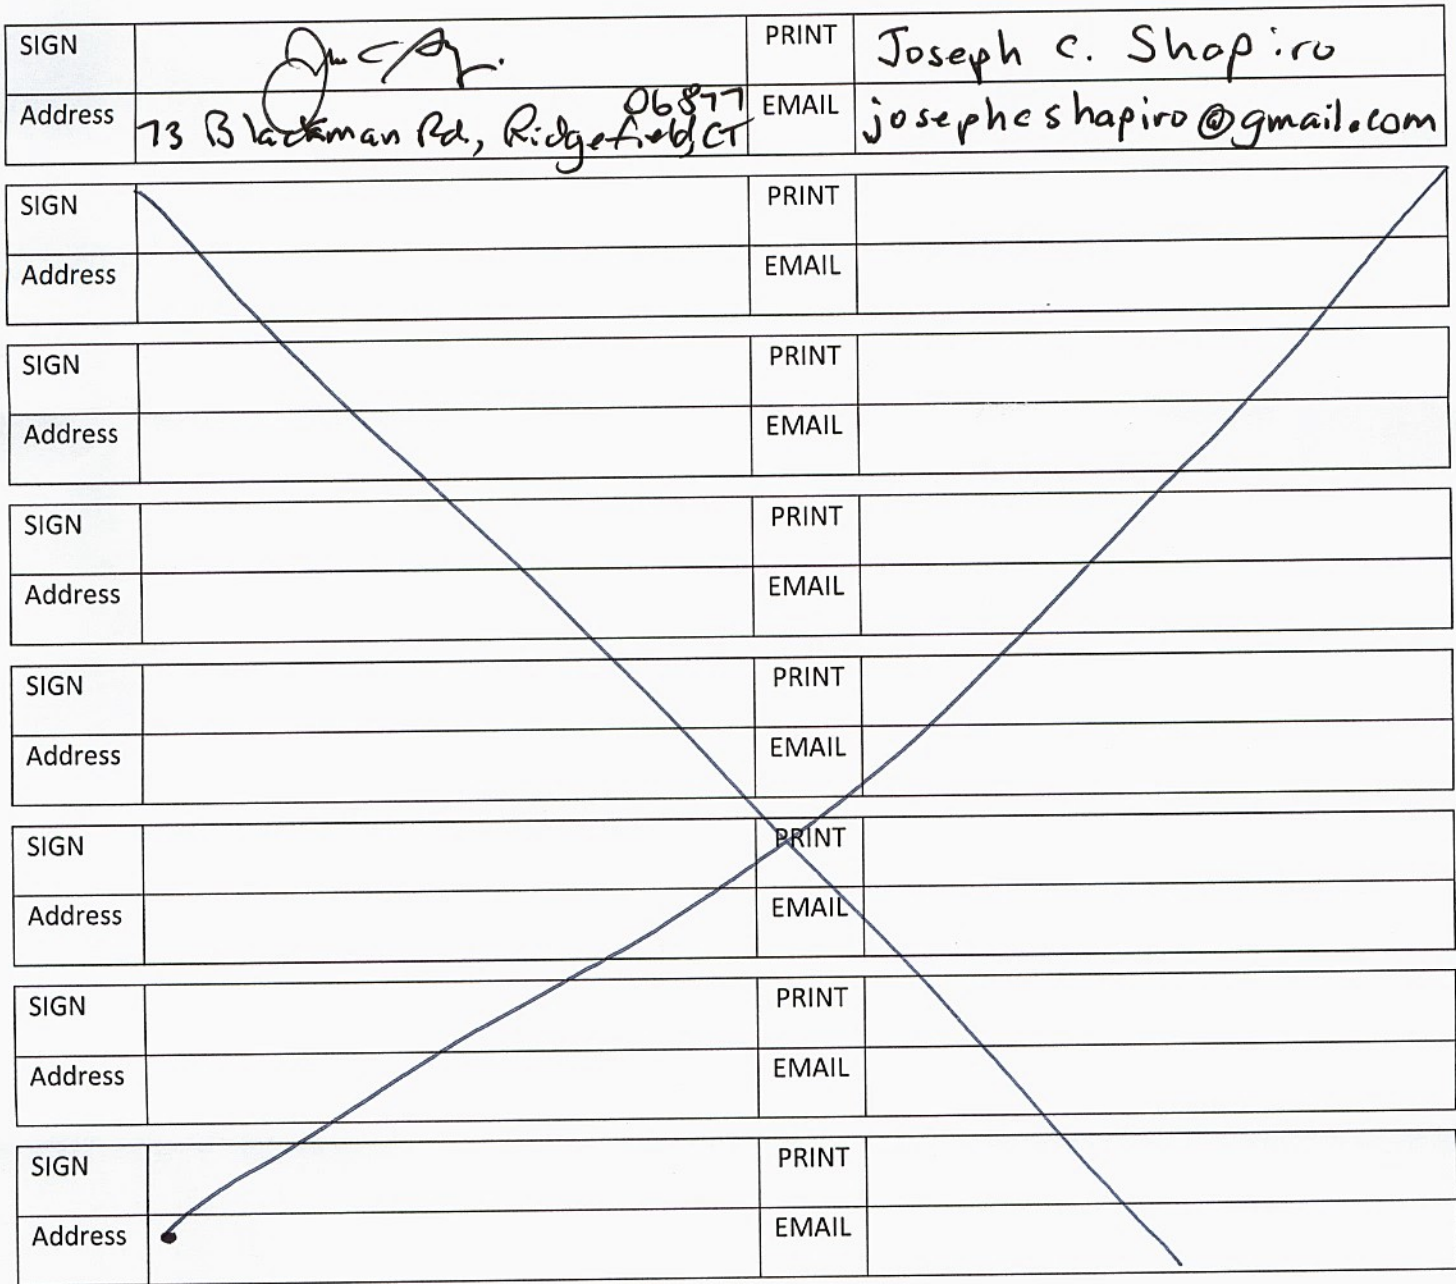 SIGN PRINT Joseph C. Shapiro
06877
Address 73 Blackman Rd, Ridgefield, CT EMAIL josephcshapiro@gmail.com
SIGN PRINT
Address EMAIL
SIGN PRINT
Address EMAIL
SIGN PRINT
Address EMAIL
SIGN PRINT
Address EMAIL
SIGN PRINT
Address EMAIL
SIGN PRINT
Address EMAIL
SIGN PRINT
Address EMAIL